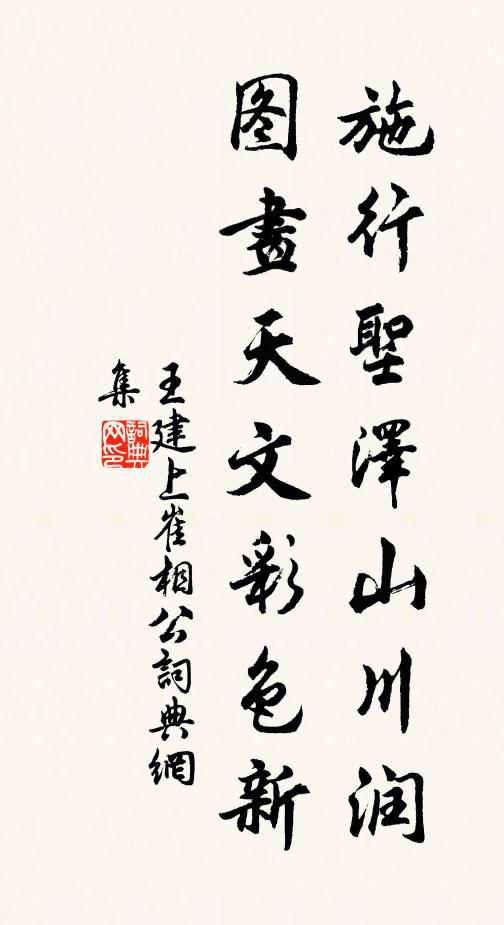 施行聖澤山川润
图畫天文彩色新
王建上崔相公詞典網
集
詞典
网印